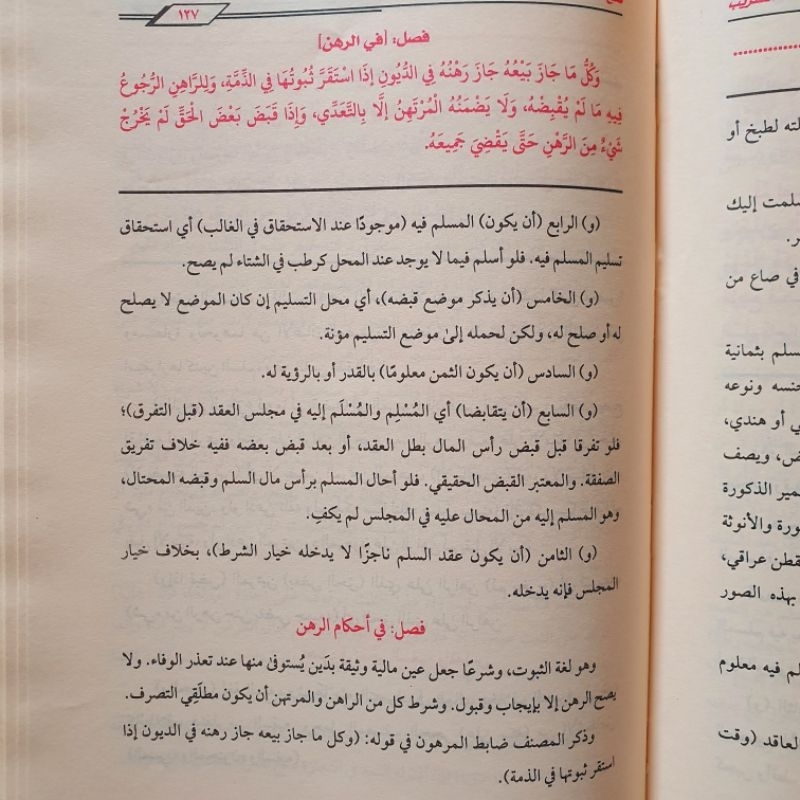 ١٢٧
فصل: [في الرهن]
وَكُلُّ مَا جَازَ بَيْعُهُ جَازَ رَهْنُهُ فِي الدُّيُونِ إِذَا اسْتَقَرَّ ثُبُوتُهَا فِي الذِّمَّةِ، وَلِلرَّاهِنِ الرُّجُوعُ
فِيهِ مَا لَمْ يُقْبِضْهُ، وَلَا يَضْمَنُهُ الْمُرْتَهِنُ إِلَّا بِالتَّعَدِّي، وَإِذَا قَبَضَ بَعْضَ الْحَقِّ لَمْ يَخْرُجْ
شَيْءٌ مِنَ الرَّهْنِ حَتَّى يَقْضِيَ جَمِيعَهُ.
(و) الرابع (أن يكون) المسلم فيه (موجودًا عند الاستحقاق في الغالب) أي استحقاق
تسليم المسلم فيه. فلو أسلم فيما لا يوجد عند المحل كرطب في الشتاء لم يصح.
(و) الخامس (أن يذكر موضع قبضه)، أي محل التسليم إن كان الموضع لا يصلح
له أو صلح له، ولكن لحمله إلىٰ موضع التسليم مؤنة.
(و) السادس (أن يكون الثمن معلومًا) بالقدر أو بالرؤية له.
(و) السابع (أن يتقابضا) أي المُسْلِم والمُسْلَم إليه في مجلس العقد (قبل التفرق)؛
فلو تفرقا قبل قبض رأس المال بطل العقد، أو بعد قبض بعضه ففيه خلاف تفريق
الصفقة. والمعتبر القبض الحقيقي. فلو أحال المسلم برأس مال السلم وقبضه المحتال،
وهو المسلم إليه من المحال عليه في المجلس لم يكفِ.
(و) الثامن (أن يكون عقد السلم ناجزًا لا يدخله خيار الشرط)، بخلاف خيار
المجلس فإنه يدخله.
فصل: في أحكام الرهن
وهو لغة الثبوت، وشرعًا جعل عين مالية وثيقة بدَين يُستوفىٰ منها عند تعذر الوفاء. ولا
يصح الرهن إلا بإيجاب وقبول. وشرط كل من الراهن والمرتهن أن يكون مطلَقِي التصرف.
وذكر المصنف ضابط المرهون في قوله: (وكل ما جاز بيعه جاز رهنه في الديون إذا
استقر ثبوتها في الذمة).
لته لطبخ أو
سلمت إليك
ر.
في صاع من
سلم بثمانية
جنسه ونوعه
ي أو هندي،
ض، ويصف
مير الذكورة
ورة والأنوثة
قطن عراقي،
بهذه الصور
لم فيه معلوم
العاقد (وقت